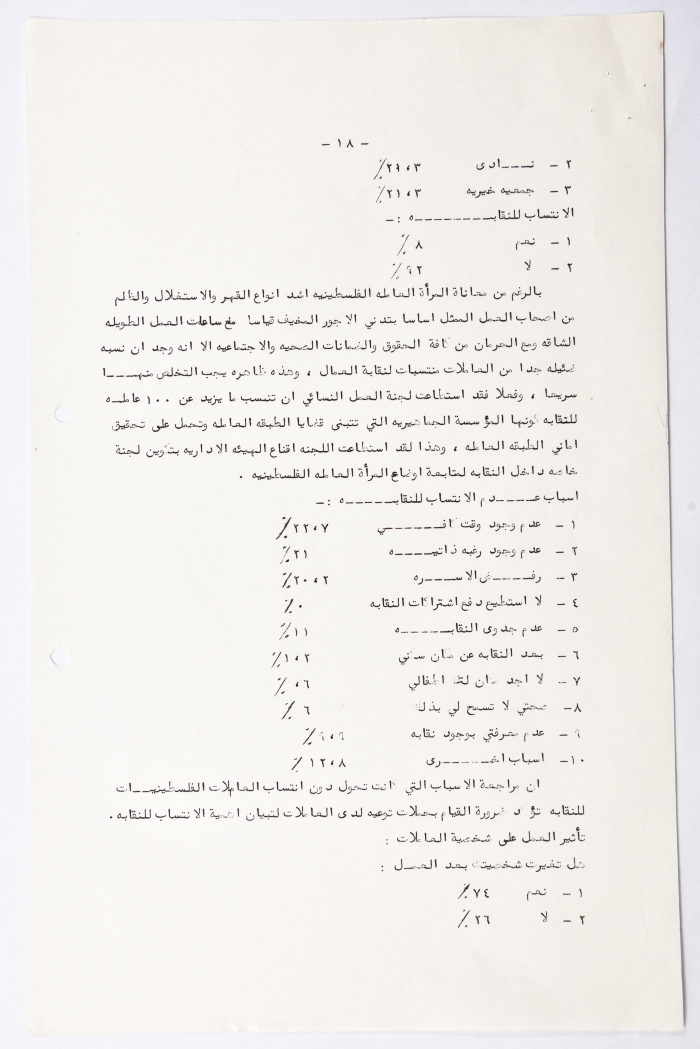 - ١٨ -
٢ - نـــادى ٢٩،٣٪
٣ - جمعيه خيريه ٢١،٣٪
الانتساب للنقابــــــه :-
١ - نعم ٨٪
٢ - لا ٩٢٪
بالرغم من معاناة المرأة العامله الفلسطينيه اشد انواع القهر والاستغلال والظلم
من اصحاب العمل المتمثل اساسا بتدني الاجور المخيف قياسا مع ساعات العمل الطويله
الشاقه ومع الحرمان من كافة الحقوق والضمانات الصحيه والاجتماعيه الا انه وجد ان نسبه
ضئيله جدا من العاملات منتسبات لنقابة العمال ، وهذه ظاهره يجب التخلص منهـــا
سريعا ، وفعلا فقد استطاعت لجنة العمل النسائي ان تنسب ما يزيد عن ١٠٠ عاملــه
للنقابه كونها المؤسسة الجماهيريه التي تتبنى قضايا الطبقه العامله وتعمل على تحقيق
اماني الطبقه العامله ، وهذا لقد استطاعت اللجنه اقناع الهيئه الاداريه بتكوين لجنة
خاصه داخل النقابه لمتابعة اوضاع المرأة العامله الفلسطينيه .
اسباب عـــــدم الانتساب للنقابـــــه :-
١ - عدم وجود وقت كافـــــــي ٢٢،٧٪
٢ - عدم وجود رغبه ذاتيـــــه ٢١٪
٣ - رفــــض الاســـره ٢٠،٢٪
٤ - لا استطيع دفع اشتراكات النقابه ٠٪
٥ - عدم جدوى النقابـــــه ١١٪
٦ - بعد النقابه عن مكان سكني ١،٢٪
٧ - لا اجد مكان لترك اطفالي ،٦٪
٨- صحتي لا تسمح لي بذلك ٦٪
٩ - عدم معرفتي بوجود نقابه ٩،٩٪
١٠- اسباب اخـــــرى ١٢،٨٪
ان مراجعة الاسباب التي كانت تحول دون انتساب العاملات الفلسطينيـــات
للنقابه تؤكد ضرورة القيام بحملات توعيه لدى العاملات لتبيان اهمية الانتساب للنقابه .
تأثير العمل على شخصية العاملات :
هل تغيرت شخصيتك بعد العمـل :
١ - نعم ٧٤٪
٢ - لا ٢٦٪